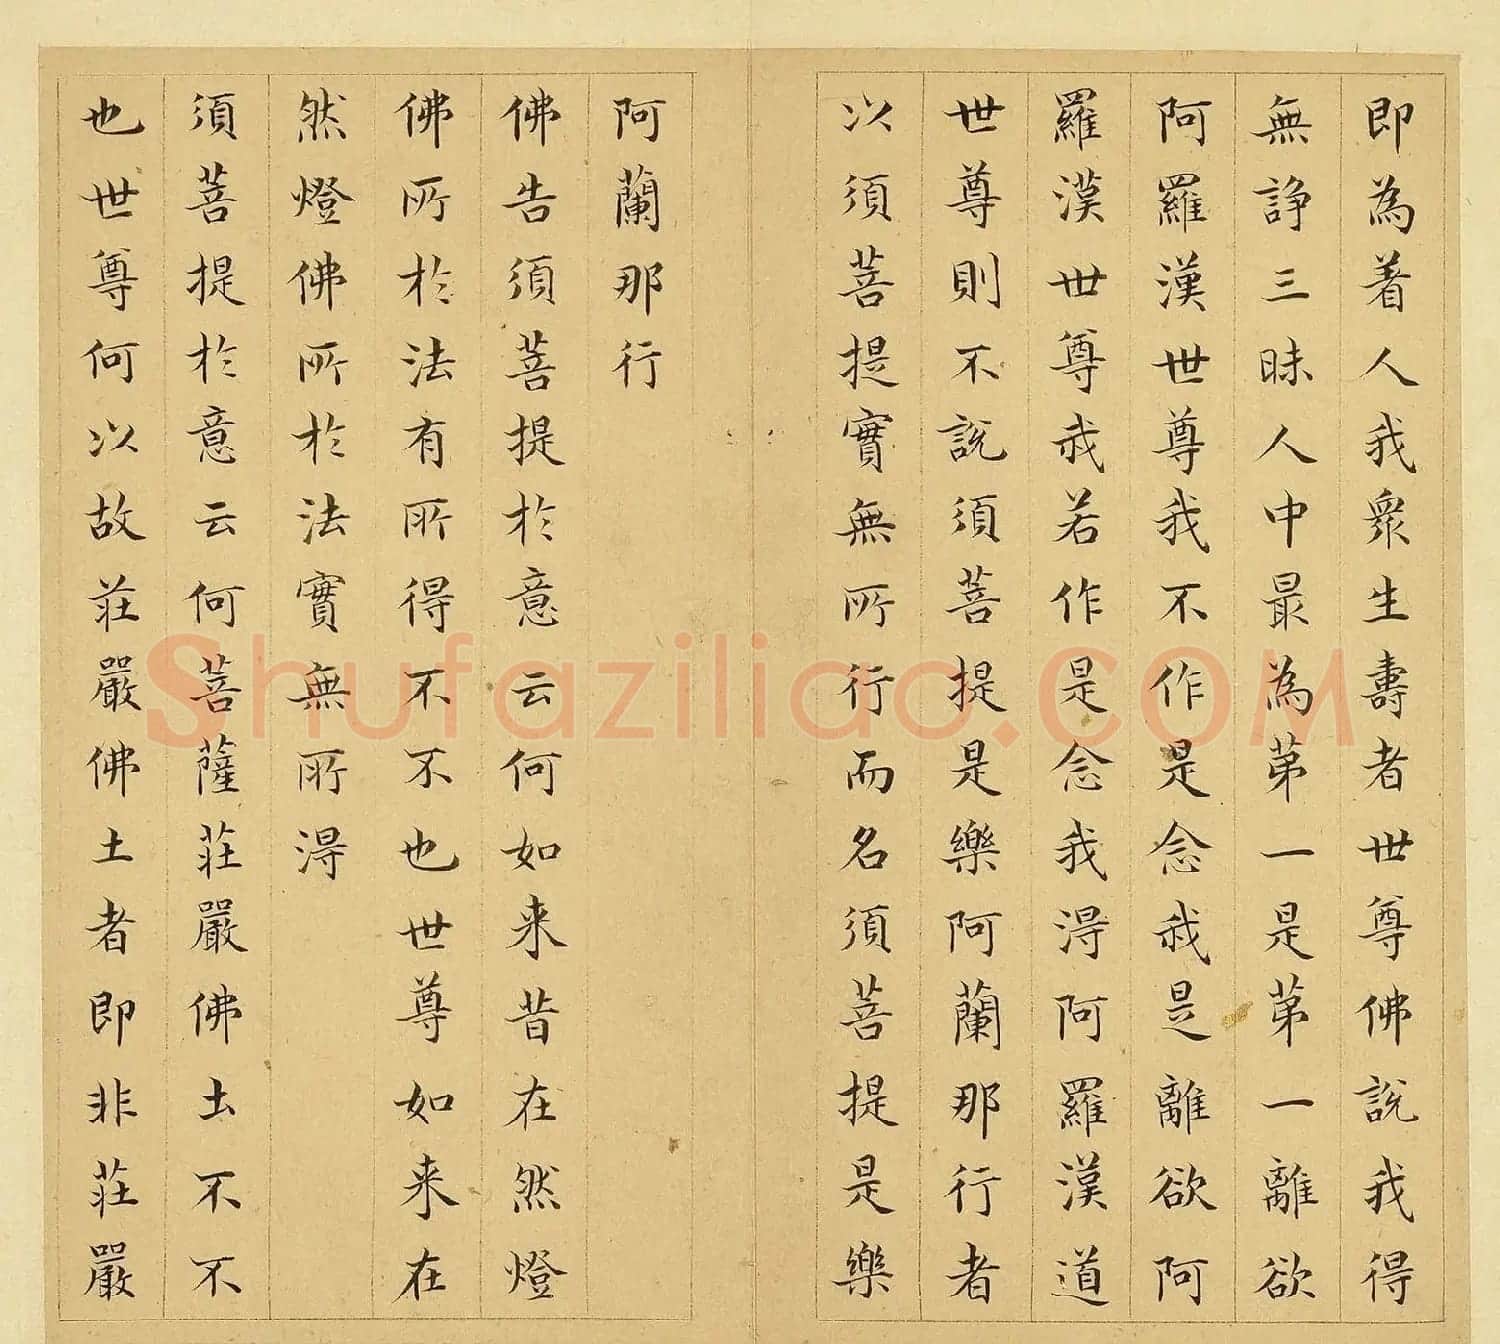 即為着人我衆生壽者世尊佛說我得
無諍三昧人中最為苐一是苐一離欲
阿羅漢世尊我不作是念我是離欲阿
羅漢世尊我若作是念我得阿羅漢道
世尊則不說須菩提是樂阿蘭那行者
以須菩提實無所行而名須菩提是樂
阿蘭那行
佛告須菩提於意云何如来昔在然燈
佛所於法有所得不不也世尊如来在
然燈佛所於法實無所得
須菩提於意云何菩薩莊嚴佛土不不
也世尊何以故莊嚴佛土者即非莊嚴
Shufaziliao.COM